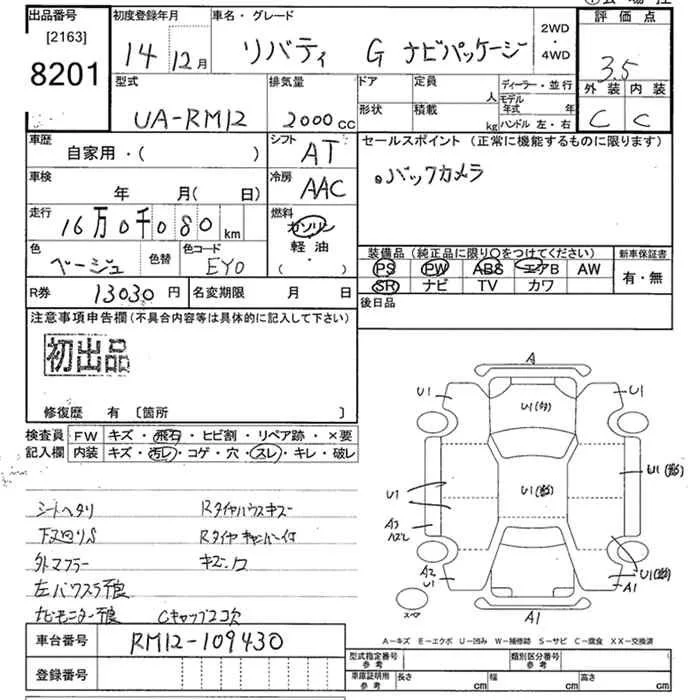 出品番号
[2163]
8201
初度登録年月
14年12月
車名・グレード
リバティ G ナビパッケージ
2WD
・
4WD
評価点
3.5
外装 内装
C C
型式
UA-RM12
排気量
2000cc
ドア
形状
定員
人
積載
kg
ディーラー・並行
モデル年式 年
ハンドル 左・右
車歴
自家用・( )
シフト
AT
セールスポイント (正常に機能するものに限ります)
バックカメラ
車検
年 月(日)
冷房
AAC
走行
16万0千080km
燃料
ガソリン
軽油・
( )
色
ベージュ
色替
色コード
EY0
装備品 (純正品に限り○をつけてください)
PS PW ABS エアB AW
SR ナビ TV カワ
新車保証書
有・無
R券
13030円
名変期限 月 日
後日品
注意事項申告欄(不具合内容等は具体的に記入して下さい)
初出品
修復歴 有 〔箇所 〕
検査員
記入欄
FW キズ・飛石・ヒビ割・リペア跡・×要
内装 キズ・汚レ・コゲ・穴・スレ・キレ・破レ
シートヘタリ
Rタイヤハウスキズ
下又回りS
外マフラー
左パワスラ不良
ナビモニター不良
Cキャップ2コ欠
A
U1
U1
U1
U1
A3
A2
U1
A1
A1
スペア
A-キズ E-エクボ U-凹み W-補修跡 S-サビ C-腐食 XX-交換済
車台番号
RM12-109430
登録番号
型式指定番号
参考
類別区分番号
参考
車庫証明用
参考
長さ cm
幅 cm
高さ cm